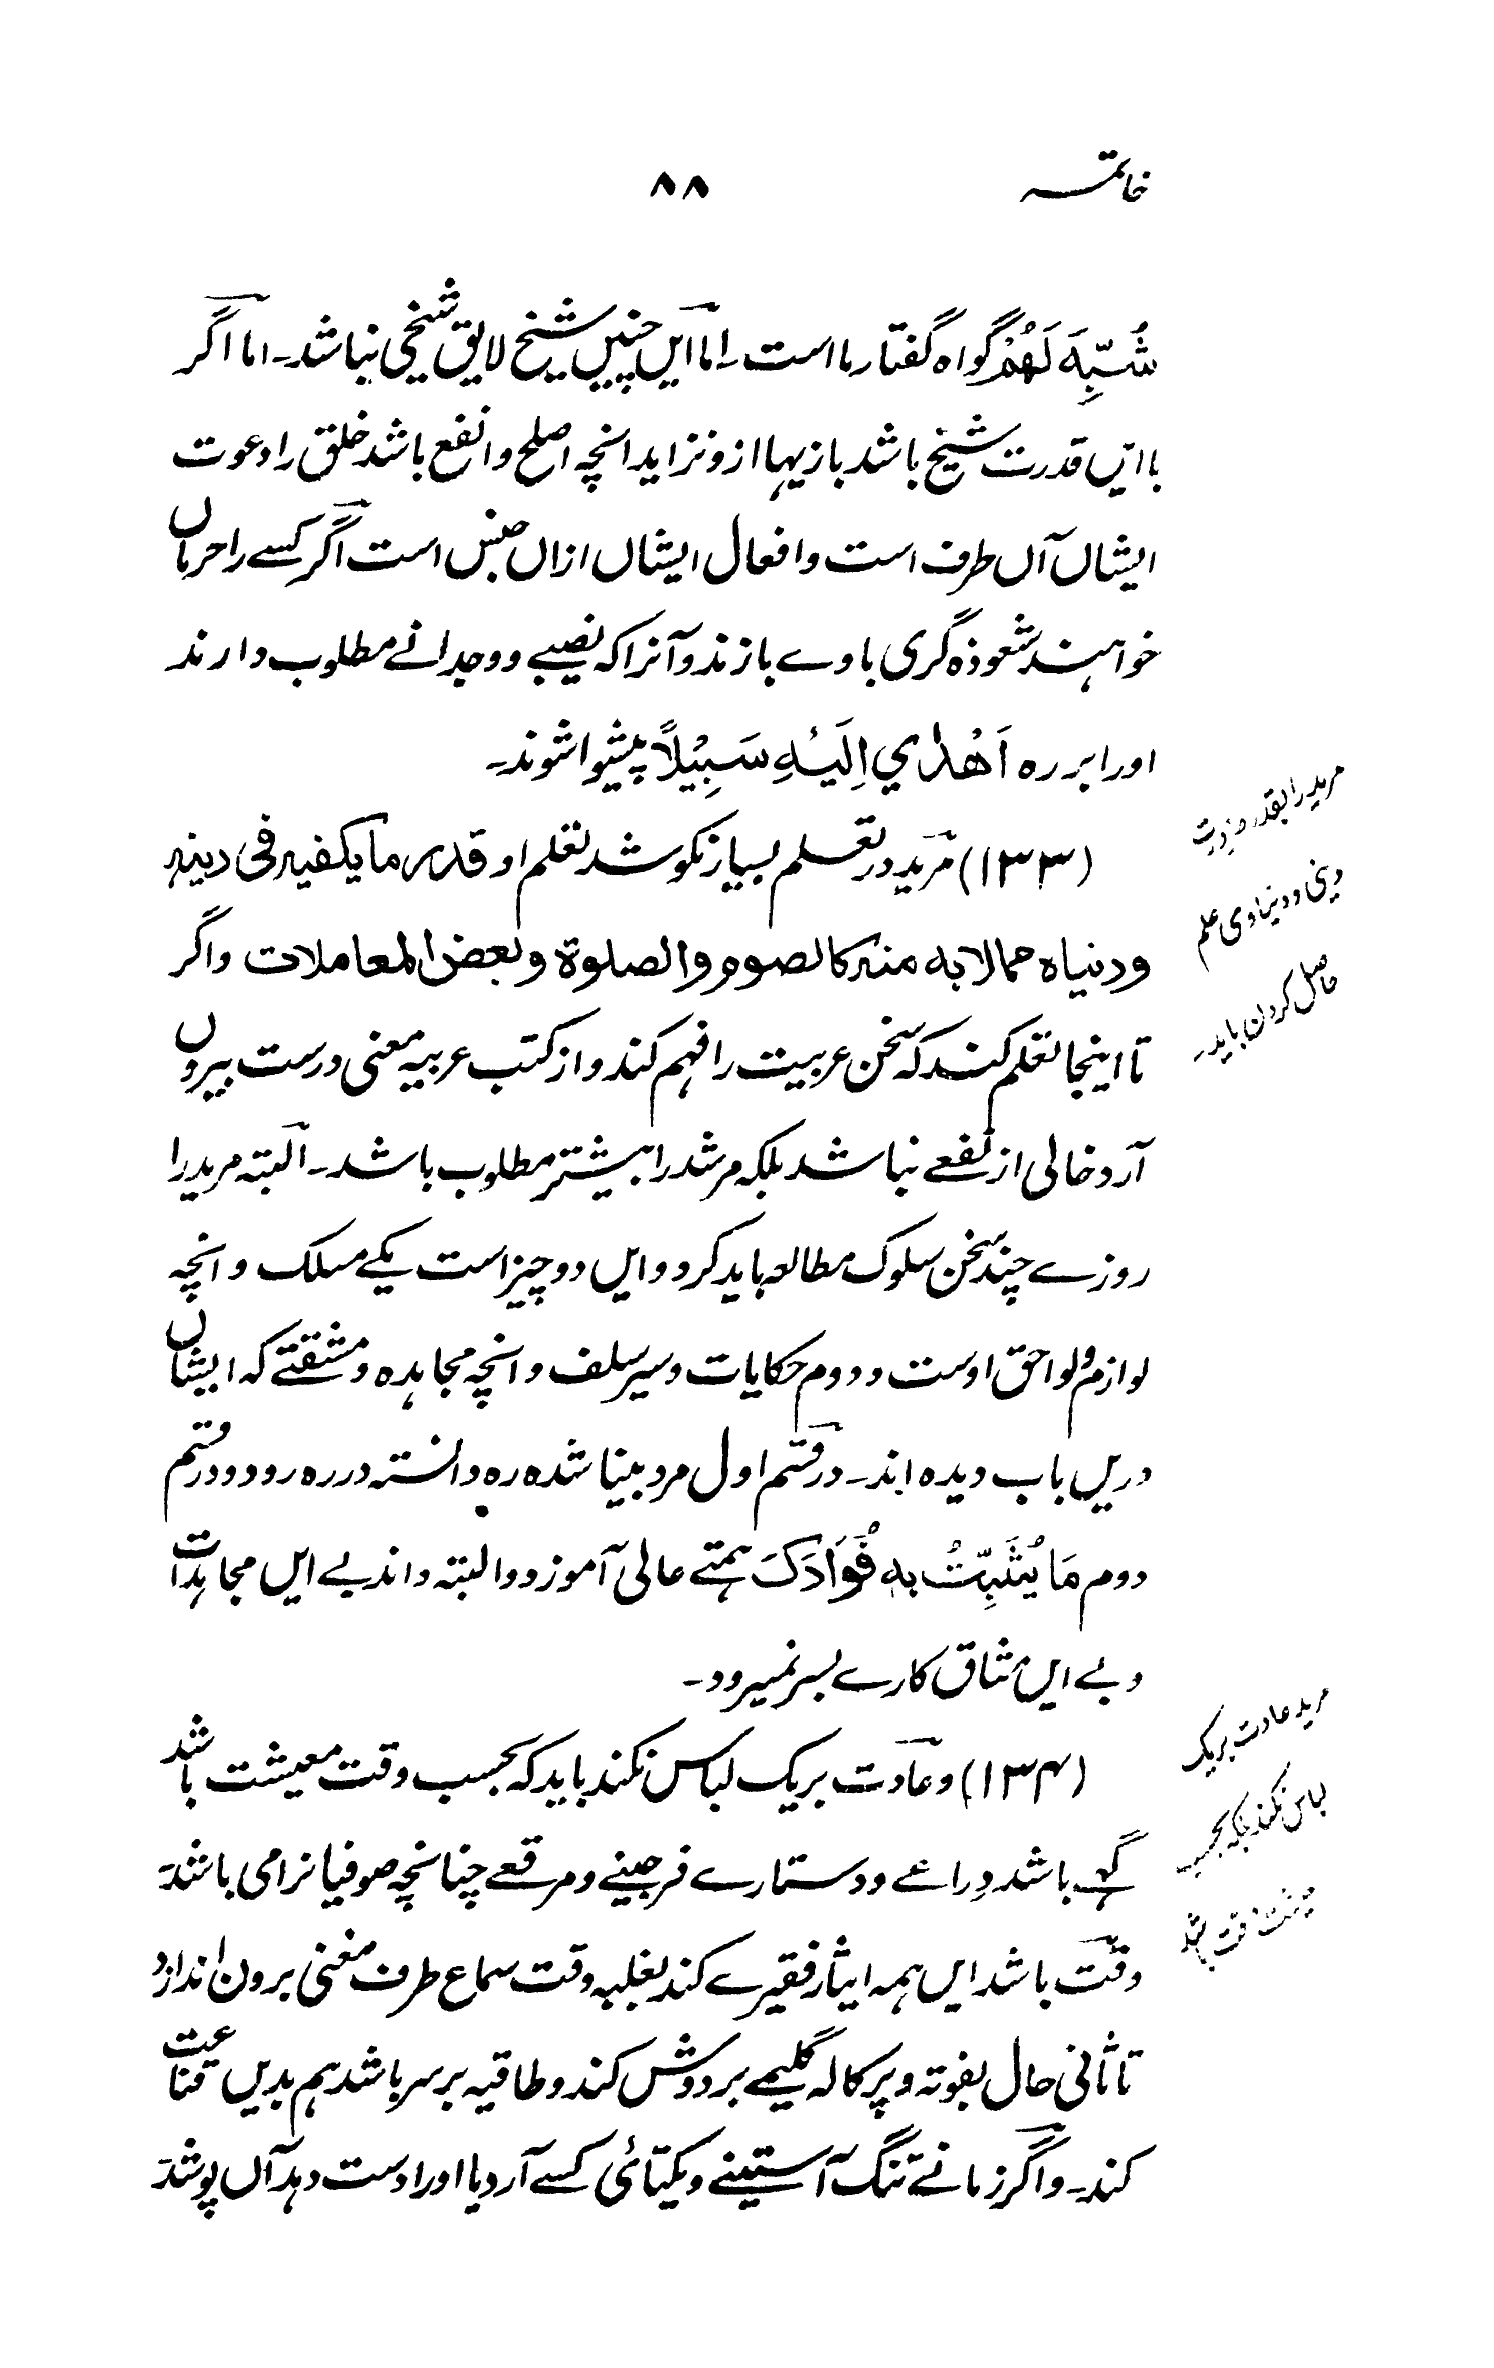 خاتمہ ۸۸
شُبِّهَ لَهُمْ گواہ گفتار ما است۔ اما ایں چنیں شیخ لایق شیخی نباشد۔ اما اگر
با ایں قدرت شیخ باشد بازیہا ازو نزاید انچہ اصلح و انفع باشد خلق را دعوت
ایشاں آں طرف است و افعال ایشاں ازاں جنس است اگر کسے را حرماں
خواہند شعوذہ گری با وے بازند و آنرا کہ نصیبے و وجدانے مطلوب دارند
اورا بر رہ اَهْدٰي اِلَيْهِ سَبِيْلاً پیشوا شوند۔
(۱۳۳) مرید در تعلم بسیار نکوشد تعلم او قدر ما یکفیہ فی دینہ
ودنیاہ ممالابد منہ کالصوم والصلوة وبعض المعاملات واگر
تا اینجا تعلم کند کہ سخن عربیت را فہم کند و از کتب عربیہ معنی درست بیروں
آرد خالی از نفعے نباشد بلکہ مرشد را بیشتر مطلوب باشد۔ البتہ مرید را
روزے چند سخن سلوک مطالعہ باید کرد و ایں دو چیز است یکے مسلک و انچہ
لوازم و لواحق اوست و دوم حکایات و سیر سلف و انچہ مجاہدہ و مشقتے کہ ایشاں
دریں باب دیدہ اند۔ در قسم اول مرد بینا شدہ رہ دانستہ در رہ رود و در قسم
دوم مَا نُثَبِّتُ بِهٖ فُؤَادَكَ ہمتے عالی آموزد و البتہ داند بے ایں مجاہدات
و بے ایں مشاق کارے بسر نمیرود۔
(۱۳۴) و عادت بریک لباس نکند باید کہ بحسب وقت معیشت باشد
گہے باشد دراعے و دستارے فرجیے و مرقعے چنانچہ صوفیانرا می باشد۔
وقت باشد ایں ہمہ ایثار فقیرے کند بغلبہ وقت سماع طرف مغنی برون اندازد
تا ثانی حال بفوتہ و پرکالہ گلیمے بر دوش کند و طاقیہ بر سر باشد ہم بدیں قناعت
کند۔ و اگر زمانے تنگ آستینے و یکتائی کسے آرد یا اورا دست دہد آں پوشد۔
مرید را بقدر ضرورت
دینی و دنیاوی علم
حاصل کردن باید۔
مرید عادت بریک
لباس نکند بلکہ بحسب
معیشت وقت باشد